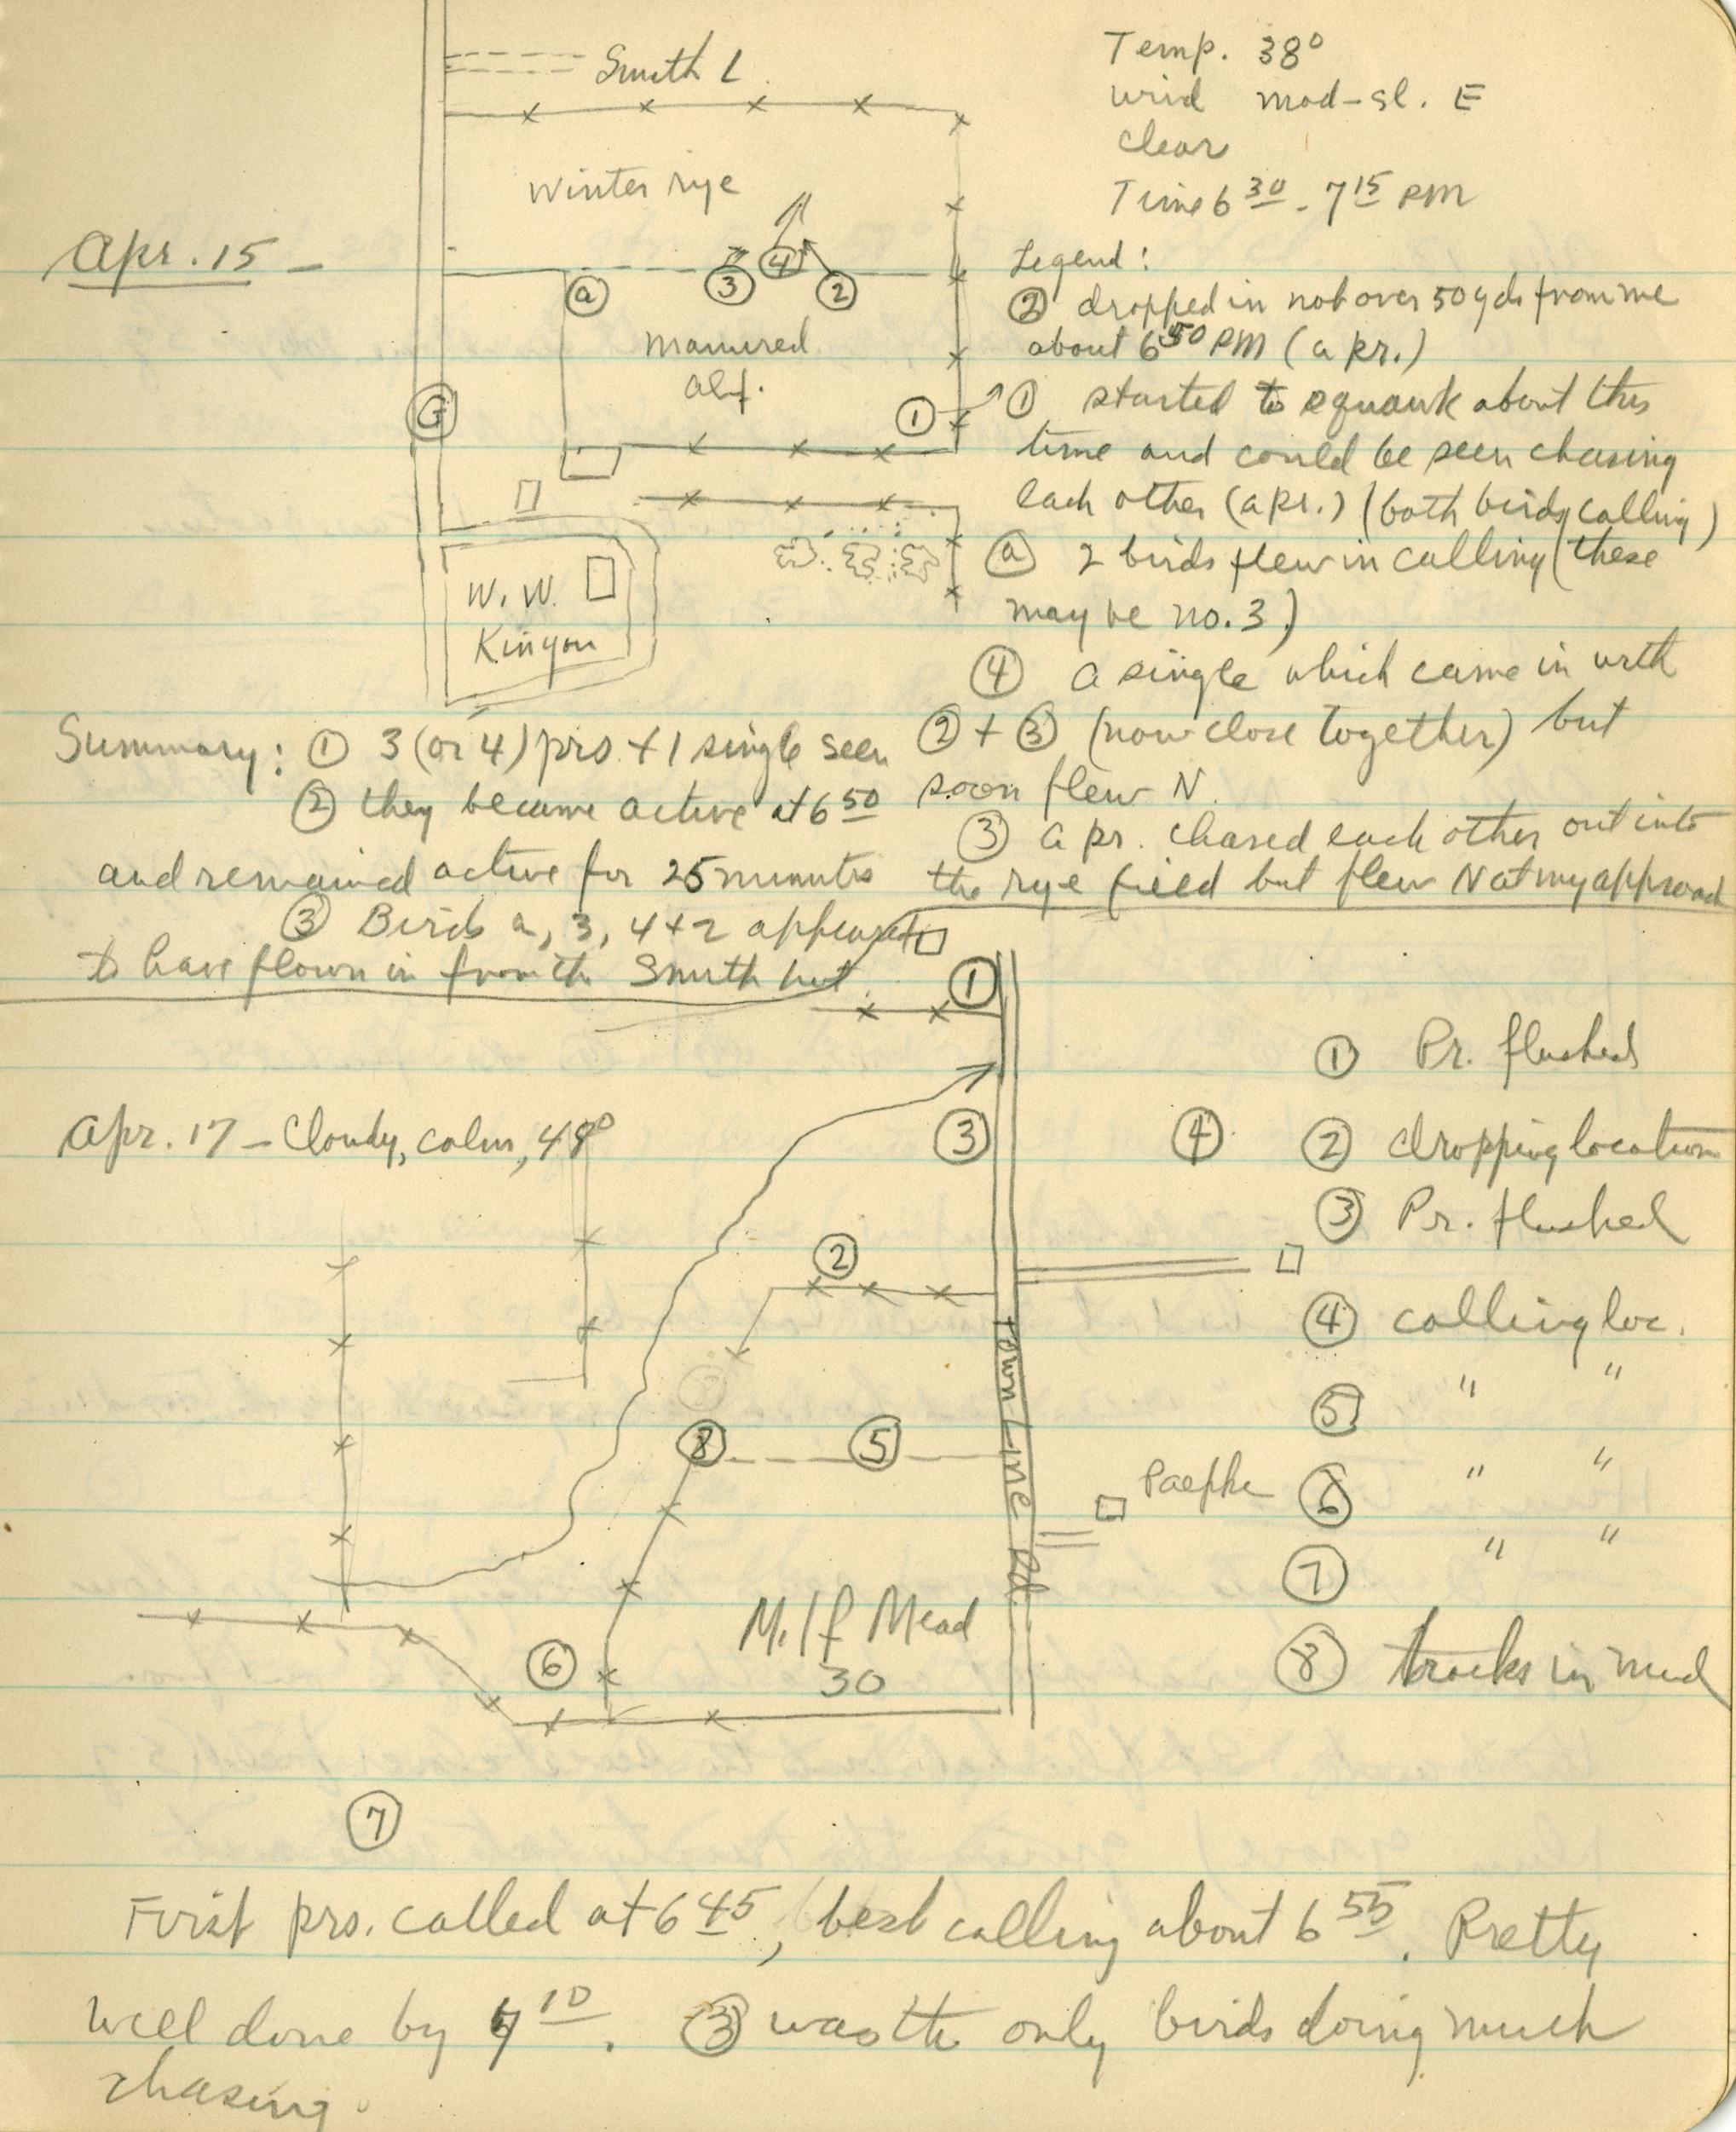 Smith L.
Temp. 38°
wind mod-sl. E
clear
Time 6 30 - 7 15 PM
Winter rye
Apr. 15 -
a 3 4 2
manured
alf.
G
1
W. W.
Kinyon
Legend:
② dropped in not over 50 yds from me
about 6 50 PM (a pr.)
① started to squauk about this
time and could be seen chasing
each other (a pr.) (both birds calling)
ⓐ 2 birds flew in calling (these
may be no. 3)
④ a single which came in with
② + ③ (now close together) but
soon flew N.
③ a pr. chased each other out into
the rye field but flew N at my approach
Summary: ① 3 (or 4) prs. + 1 single seen
② they became active at 6 50
and remained active for 25 minutes
③ Birds a, 3, 4 + 2 appeared
to have flown in from the Smith
Apr. 17 - Cloudy, calm,
①
③
④
②
⑧ ⑤
⑥
⑦
Town Line Rd.
Paepke
Milf Mead
30
① Pr. flushed
② dropping location
③ Pr. flushed
④ calling loc.
⑤ " "
⑥ " "
⑦ " "
⑧ tracks in mud
First prs. called at 6 45, best calling about 6 55. Pretty
well done by 7 10. ③ was the only birds doing much
chasing.